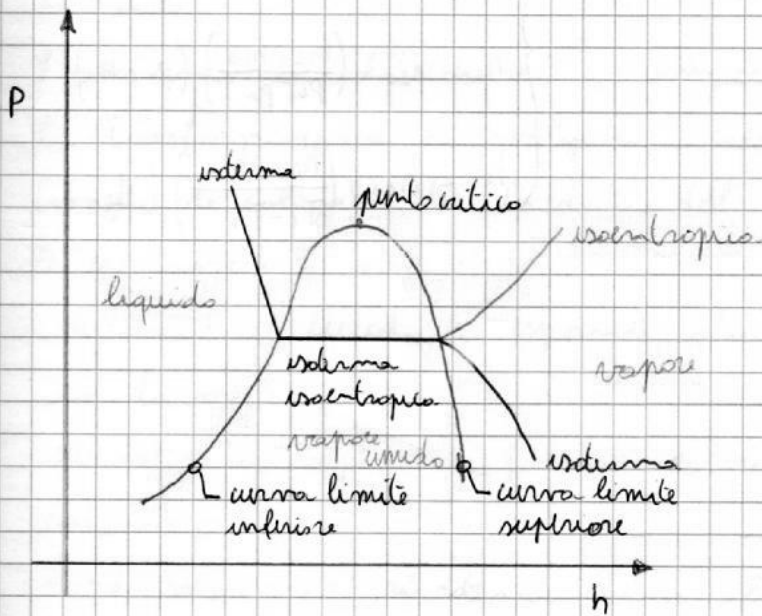 P
isoterma
punto critico
isoentropica
liquido
isoterma
isoentropica
vapore
vapore
umido
isoterma
curva limite
inferiore
curva limite
superiore
h